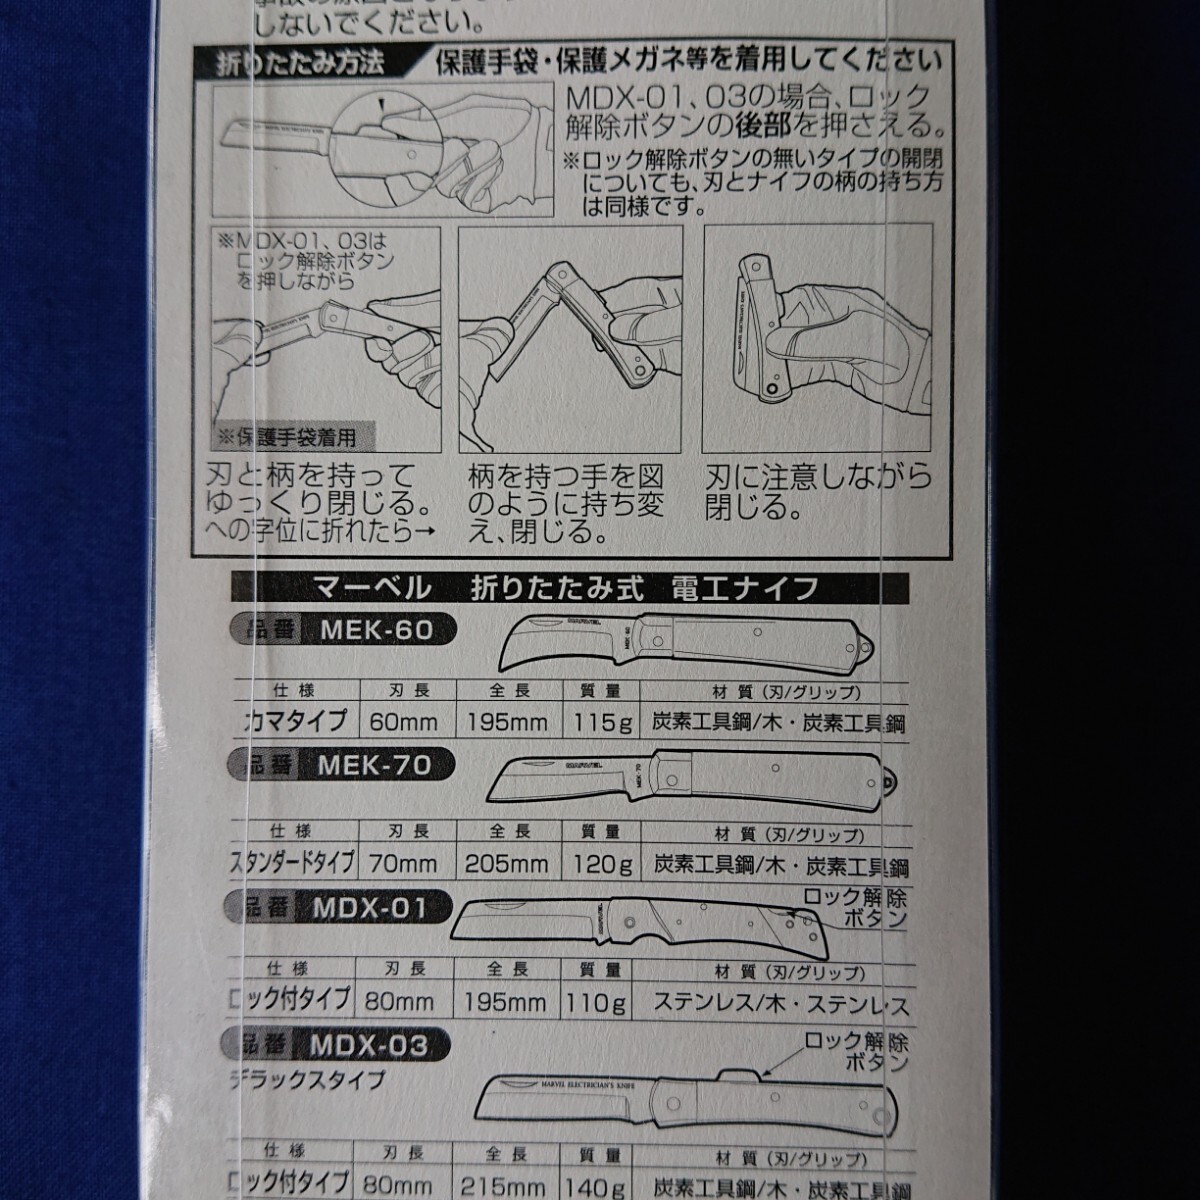 しないでください。
折りたたみ方法 保護手袋・保護メガネ等を着用してください
MDX-01、03の場合、ロック
解除ボタンの後部を押さえる。
※ロック解除ボタンの無いタイプの開閉
についても、刃とナイフの柄の持ち方
は同様です。
※MDX-01、03は
ロック解除ボタン
を押しながら
※保護手袋着用
刃と柄を持って
ゆっくり閉じる。
への字位に折れたら→
柄を持つ手を図
のように持ち変
え、閉じる。
刃に注意しながら
閉じる。
マーベル 折りたたみ式 電工ナイフ
品番 MEK-60
MARVEL
MEK-60
仕様 刃長 全長 質量 材質(刃/グリップ)
カマタイプ 60mm 195mm 115g 炭素工具鋼/木・炭素工具鋼
品番 MEK-70
MARVEL
MEK-70
仕様 刃長 全長 質量 材質(刃/グリップ)
スタンダードタイプ 70mm 205mm 120g 炭素工具鋼/木・炭素工具鋼
品番 MDX-01
ロック解除
ボタン
仕様 刃長 全長 質量 材質(刃/グリップ)
ロック付タイプ 80mm 195mm 110g ステンレス/木・ステンレス
品番 MDX-03
デラックスタイプ
ロック解除
ボタン
MARVEL ELECTRICIAN'S KNIFE
仕様 刃長 全長 質量 材質(刃/グリップ)
ロック付タイプ 80mm 215mm 140g 炭素工具鋼/木・炭素工具鋼